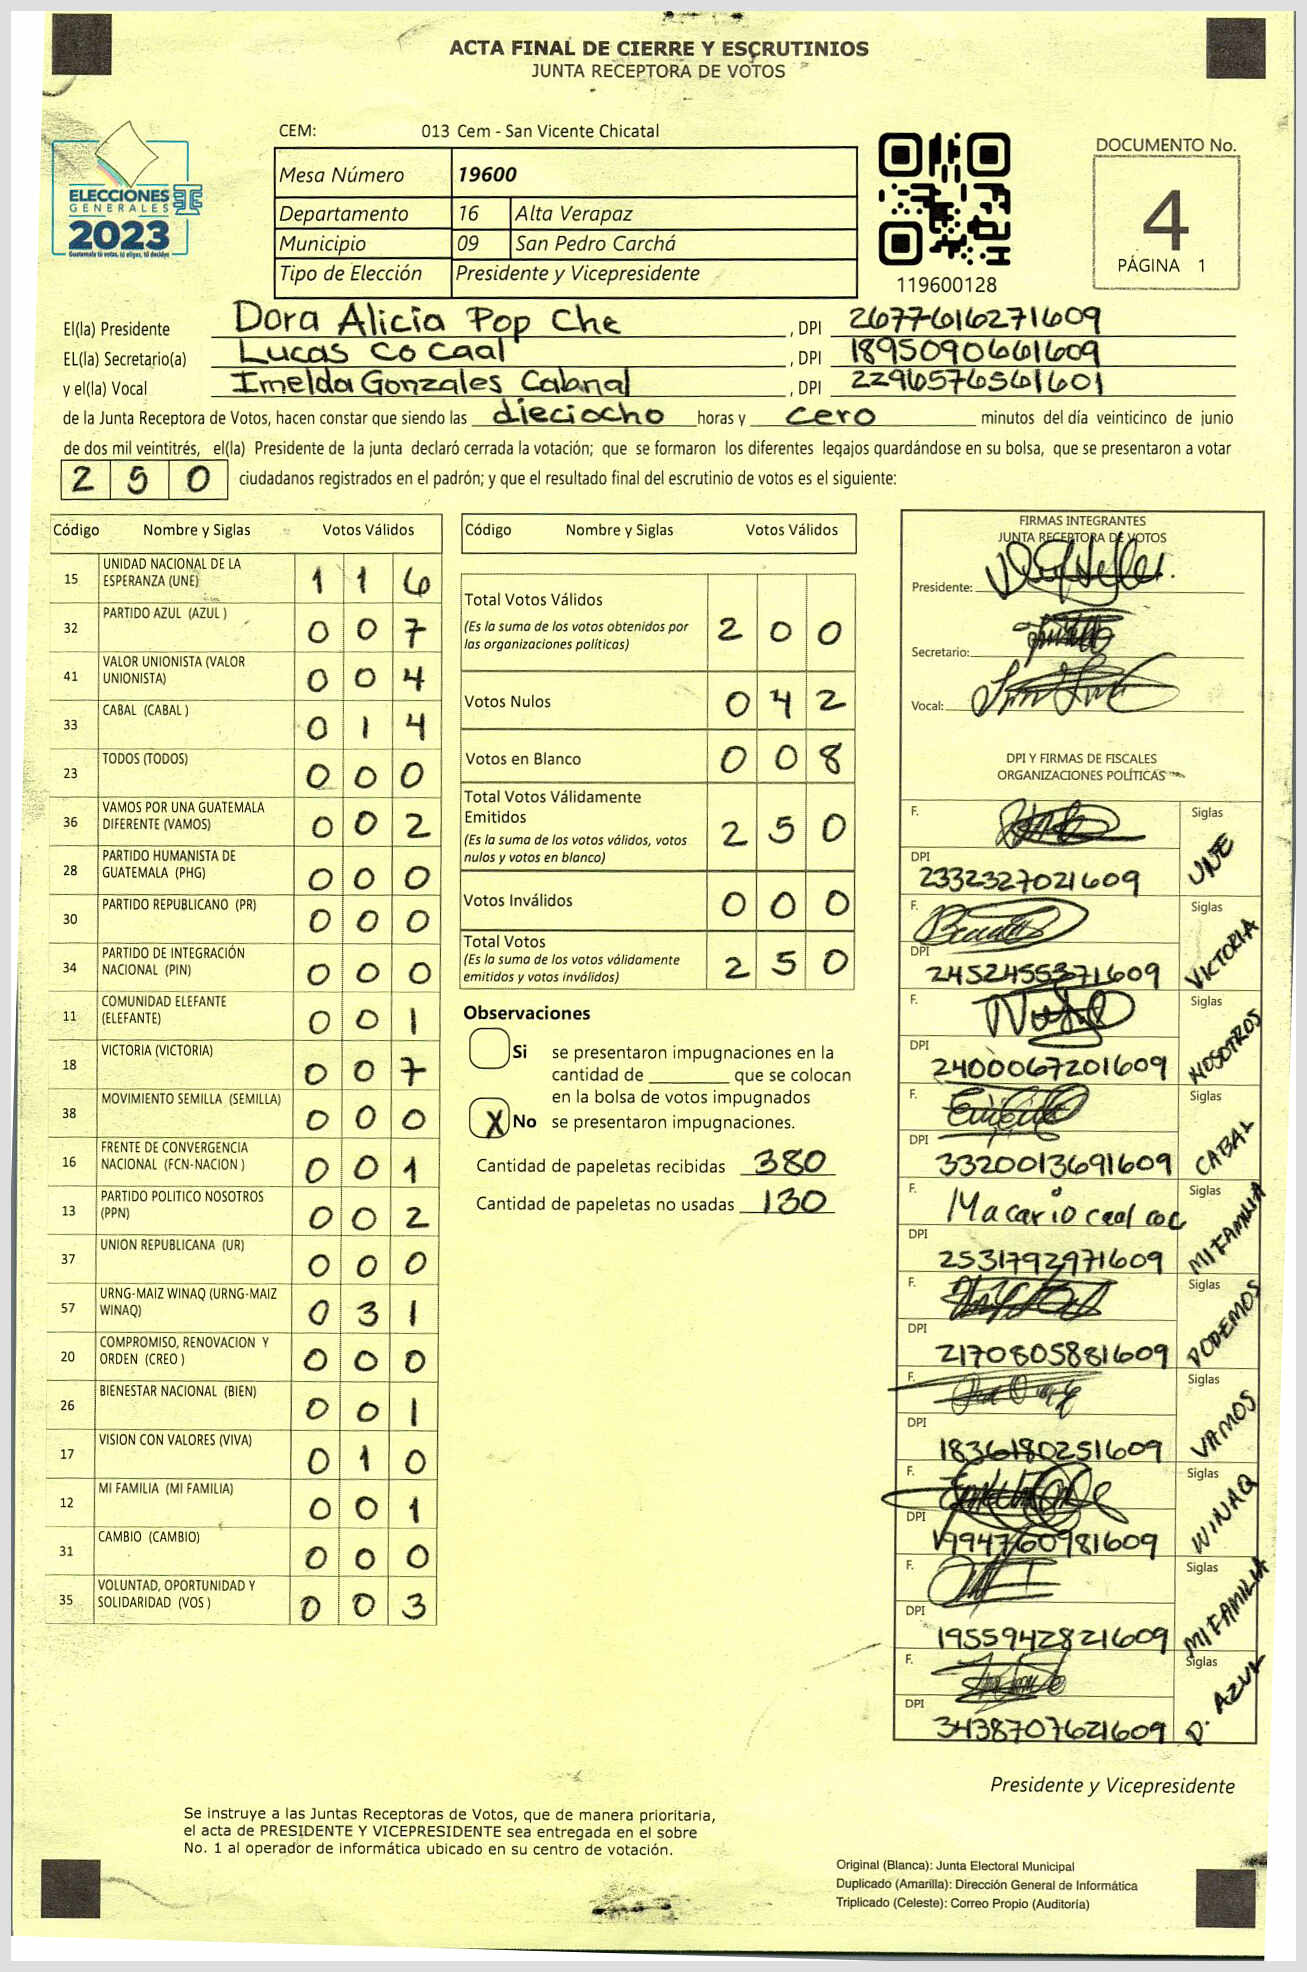 ACTA FINAL DE CIERRE Y ESCRUTINIOS
JUNTA RECEPTORA DE VOTOS
ELECCIONES
GENERALES
2023
Guatemala tú votas, tú eliges, tú decides
CEM: 013 Cem - San Vicente Chicatal
Mesa Número 19600
Departamento 16 Alta Verapaz
Municipio 09 San Pedro Carchá
Tipo de Elección Presidente y Vicepresidente
119600128
DOCUMENTO No.
4
PÁGINA 1
El(la) Presidente Dora Alicia Pop Che , DPI 2677616271609
EL(la) Secretario(a) Lucas Co Caal , DPI 1895090661609
y el(la) Vocal Imelda Gonzales Cabnal , DPI 2296576561601
de la Junta Receptora de Votos, hacen constar que siendo las dieciocho horas y cero minutos del día veinticinco de junio
de dos mil veintitrés, el(la) Presidente de la junta declaró cerrada la votación; que se formaron los diferentes legajos guardándose en su bolsa, que se presentaron a votar
250 ciudadanos registrados en el padrón; y que el resultado final del escrutinio de votos es el siguiente:
Código Nombre y Siglas Votos Válidos
15 UNIDAD NACIONAL DE LA ESPERANZA (UNE) 1 1 6
32 PARTIDO AZUL (AZUL ) 0 0 7
41 VALOR UNIONISTA (VALOR UNIONISTA) 0 0 4
33 CABAL (CABAL ) 0 1 4
23 TODOS (TODOS) 0 0 0
36 VAMOS POR UNA GUATEMALA DIFERENTE (VAMOS) 0 0 2
28 PARTIDO HUMANISTA DE GUATEMALA (PHG) 0 0 0
30 PARTIDO REPUBLICANO (PR) 0 0 0
34 PARTIDO DE INTEGRACIÓN NACIONAL (PIN) 0 0 0
11 COMUNIDAD ELEFANTE (ELEFANTE) 0 0 1
18 VICTORIA (VICTORIA) 0 0 7
38 MOVIMIENTO SEMILLA (SEMILLA) 0 0 0
16 FRENTE DE CONVERGENCIA NACIONAL (FCN-NACION ) 0 0 1
13 PARTIDO POLITICO NOSOTROS (PPN) 0 0 2
37 UNION REPUBLICANA (UR) 0 0 0
57 URNG-MAIZ WINAQ (URNG-MAIZ WINAQ) 0 3 1
20 COMPROMISO, RENOVACION Y ORDEN (CREO ) 0 0 0
26 BIENESTAR NACIONAL (BIEN) 0 0 1
17 VISION CON VALORES (VIVA) 0 1 0
12 MI FAMILIA (MI FAMILIA) 0 0 1
31 CAMBIO (CAMBIO) 0 0 0
35 VOLUNTAD, OPORTUNIDAD Y SOLIDARIDAD (VOS ) 0 0 3
Código Nombre y Siglas Votos Válidos
Total Votos Válidos 2 0 0
(Es la suma de los votos obtenidos por
las organizaciones políticas)
Votos Nulos 0 4 2
Votos en Blanco 0 0 8
Total Votos Válidamente
Emitidos 2 5 0
(Es la suma de los votos válidos, votos
nulos y votos en blanco)
Votos Inválidos 0 0 0
Total Votos 2 5 0
(Es la suma de los votos válidamente
emitidos y votos inválidos)
Observaciones
Si se presentaron impugnaciones en la
cantidad de ________ que se colocan
en la bolsa de votos impugnados
X No se presentaron impugnaciones.
Cantidad de papeletas recibidas 380
Cantidad de papeletas no usadas 130
FIRMAS INTEGRANTES
JUNTA RECEPTORA DE VOTOS
Presidente:
Secretario:
Vocal:
DPI Y FIRMAS DE FISCALES
ORGANIZACIONES POLÍTICAS
F. Siglas UNE
DPI 2332327021609
F. Siglas VICTORIA
DPI 2452455371609
F. Siglas NOSOTROS
DPI 2400067201609
F. Siglas CABAL
DPI 3320013691609
F. Macario caal coc Siglas MI FAMILIA
DPI 2531792971609
F. Siglas PODEMOS
DPI 2170805881609
F. Siglas VAMOS
DPI 1836180251609
F. Siglas WINAQ
DPI 1994760981609
F. Siglas MI FAMILIA
DPI 1955942821609
F. Siglas P. AZUL
DPI 3438707621609
Presidente y Vicepresidente
Se instruye a las Juntas Receptoras de Votos, que de manera prioritaria,
el acta de PRESIDENTE Y VICEPRESIDENTE sea entregada en el sobre
No. 1 al operador de informática ubicado en su centro de votación.
Original (Blanca): Junta Electoral Municipal
Duplicado (Amarilla): Dirección General de Informática
Triplicado (Celeste): Correo Propio (Auditoría)